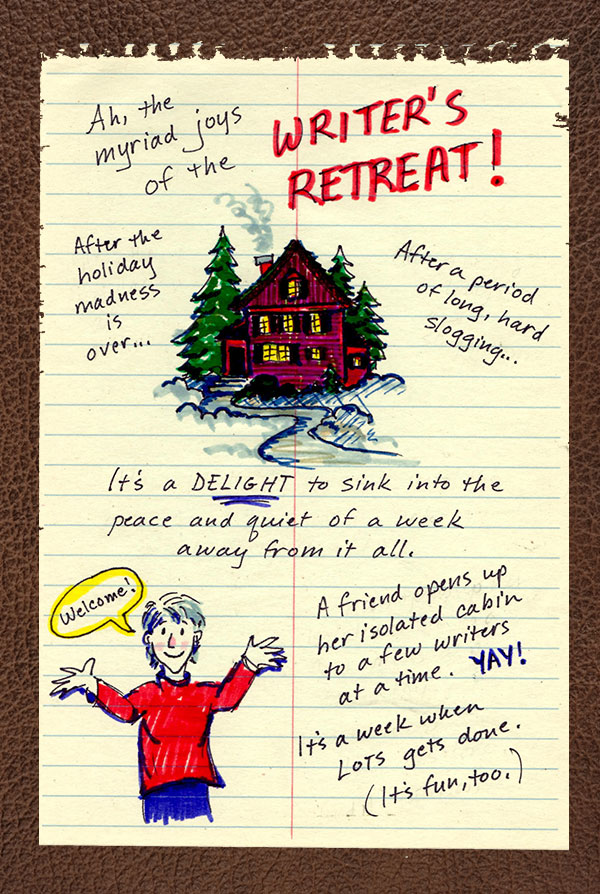 Ah, the
myriad joys
of the
WRITER'S
RETREAT!
After the
holiday
madness
is
over...
After a period
of long, hard
slogging...
It's a DELIGHT to sink into the
peace and quiet of a week
away from it all.
Welcome!
A friend opens up
her isolated cabin
to a few writers
at a time. YAY!
It's a week when
LOTS gets done.
(It's fun, too.)